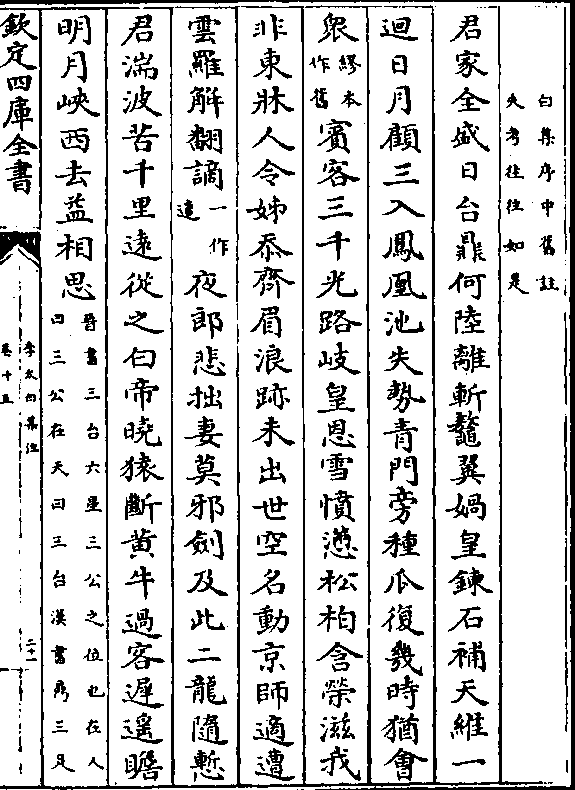 白集序中舊註
失考往往如是
君家全盛日台鼎何陸離斬鼇翼媧皇鍊石補天維一
迴日月顧三入鳳凰池失勢青門旁種瓜復幾時猶會
衆繆本作舊賓客三千光路岐皇恩雪憤懣松柏含榮滋我
非東牀人令姊忝齊眉浪跡未出世空名動京師適遭
雲羅解翻謫一作遠夜郎悲拙妻莫邪劍及此二龍隨慙
君湍波苦千里遠從之白帝曉猿斷黄牛過客遲遥瞻
明月峽西去益相思晉書三台六星三公之位也在人
曰三公在天曰三台漢書鼎三足
欽定四庫全書
李太白集注
卷十五
二十一